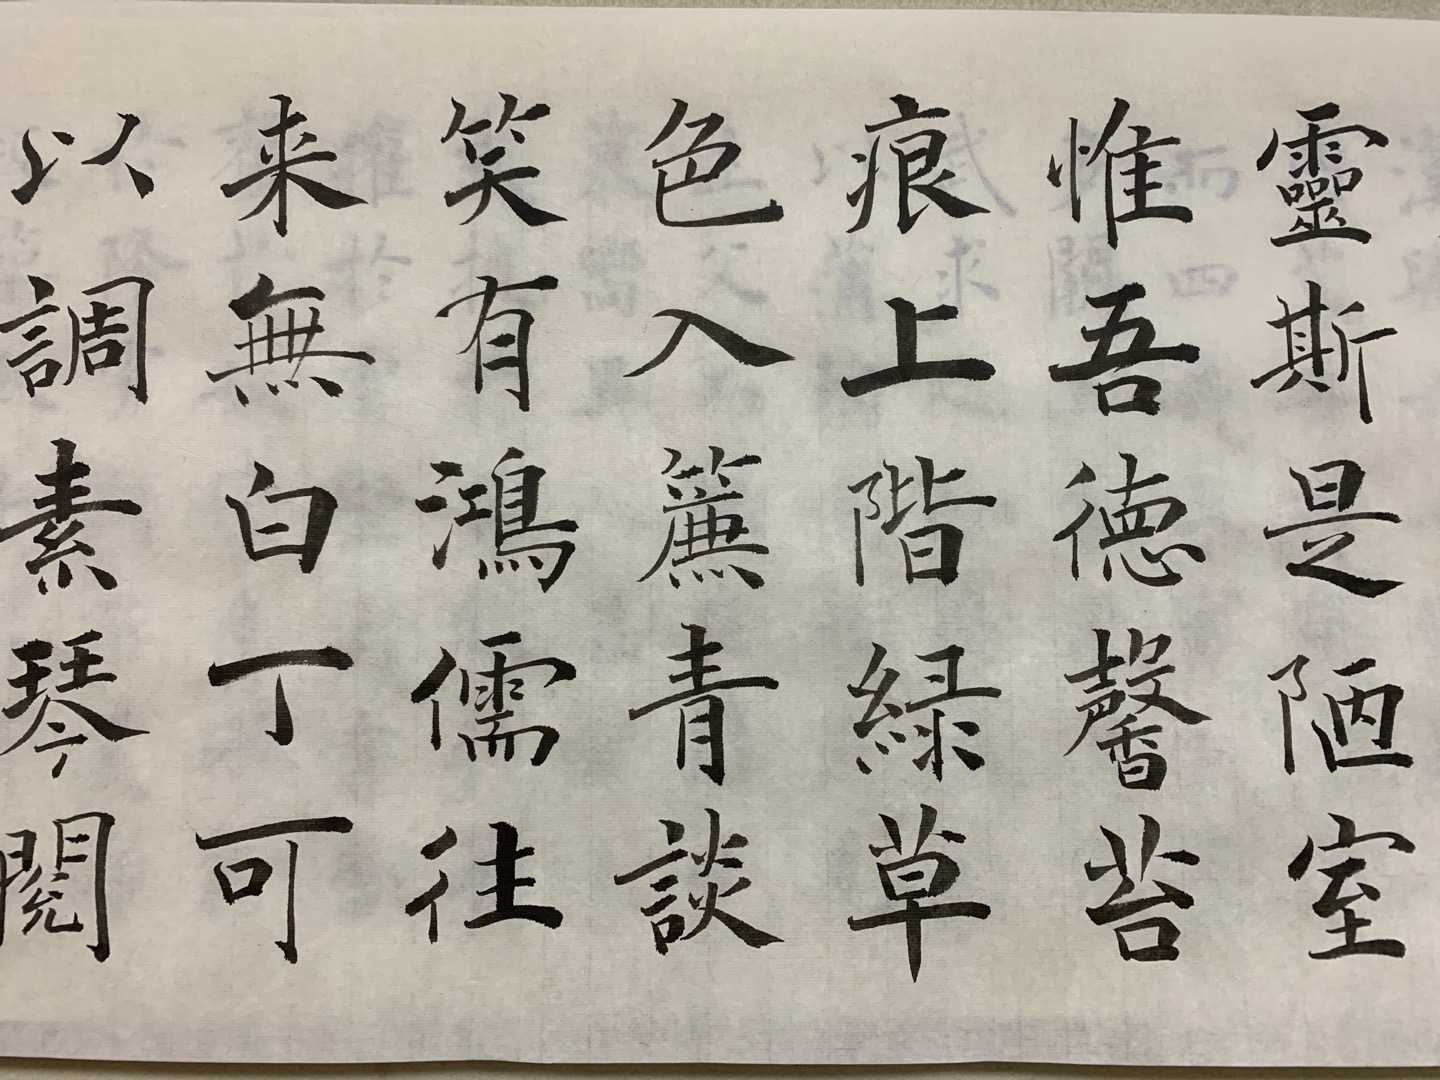 靈斯是陋室
惟吾徳馨苔
痕上階緑草
色入簾青談
笑有鴻儒往
来無白丁可
以調素琴閱